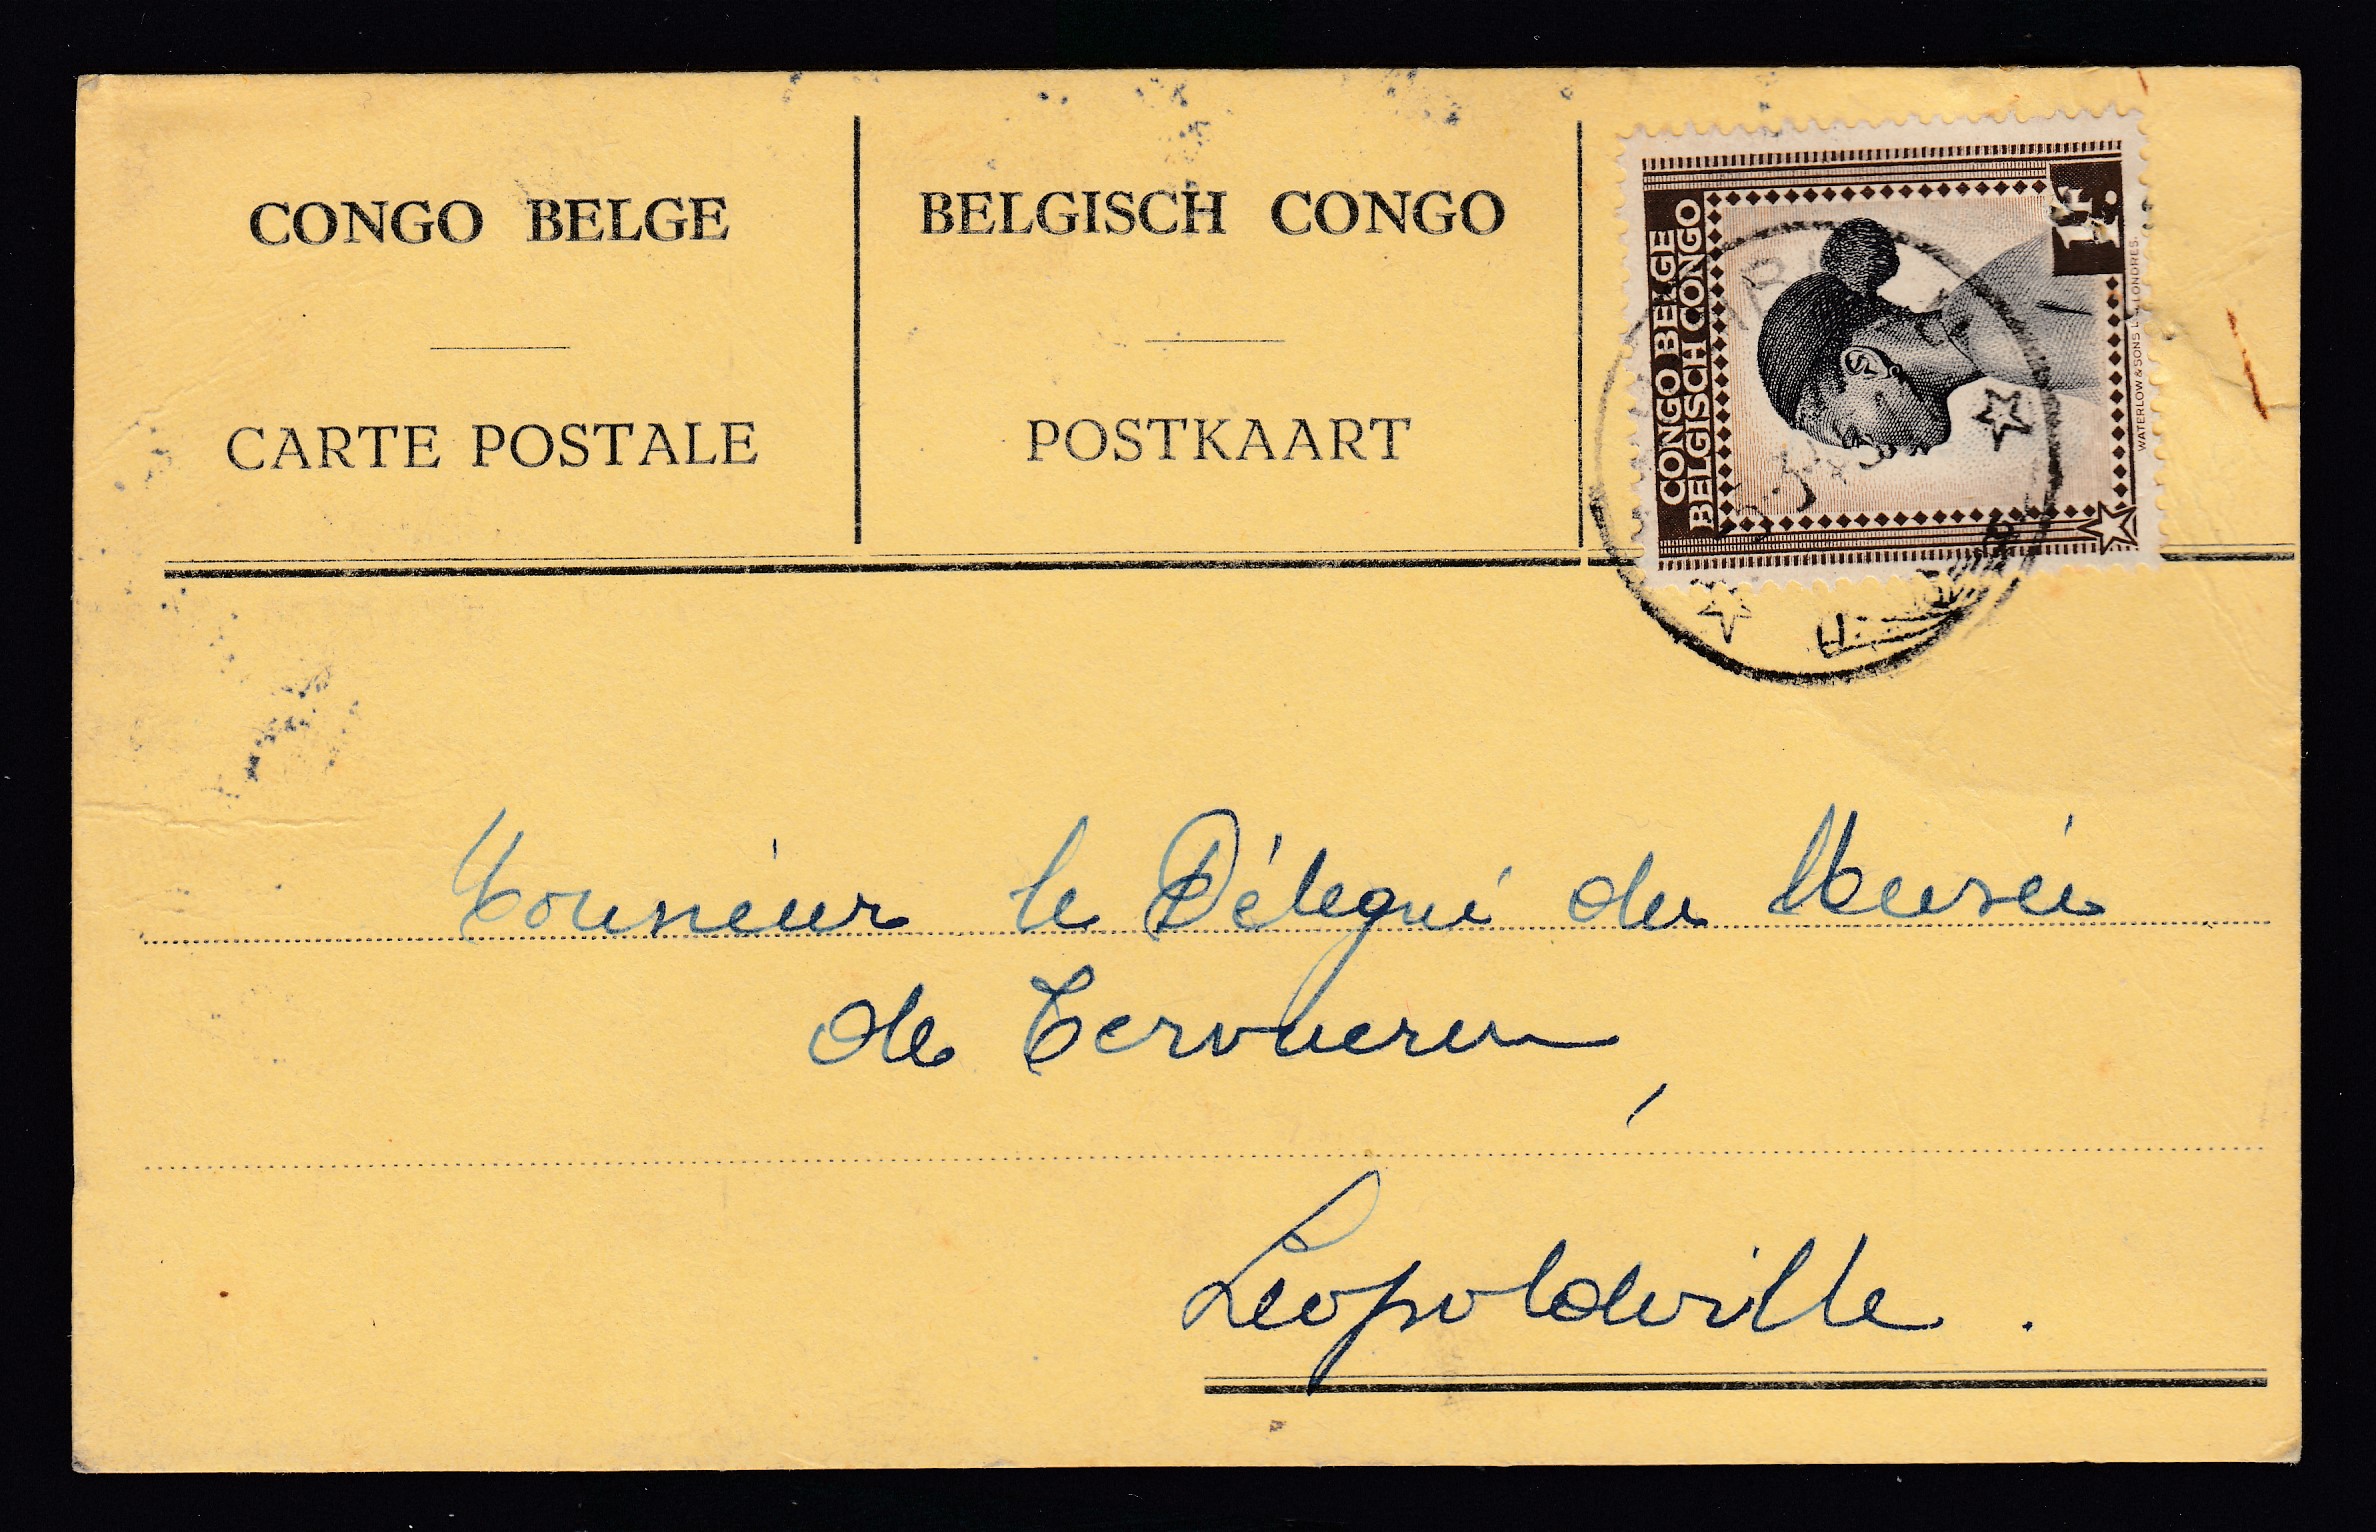 CONGO BELGE
CARTE POSTALE
BELGISCH CONGO
POSTKAART
CONGO BELGE
BELGISCH CONGO
1F.
WATERLOW & SONS Ld. LONDRES.
Monsieur le Délégué du Musée
de Tervueren,
Léopoldville.